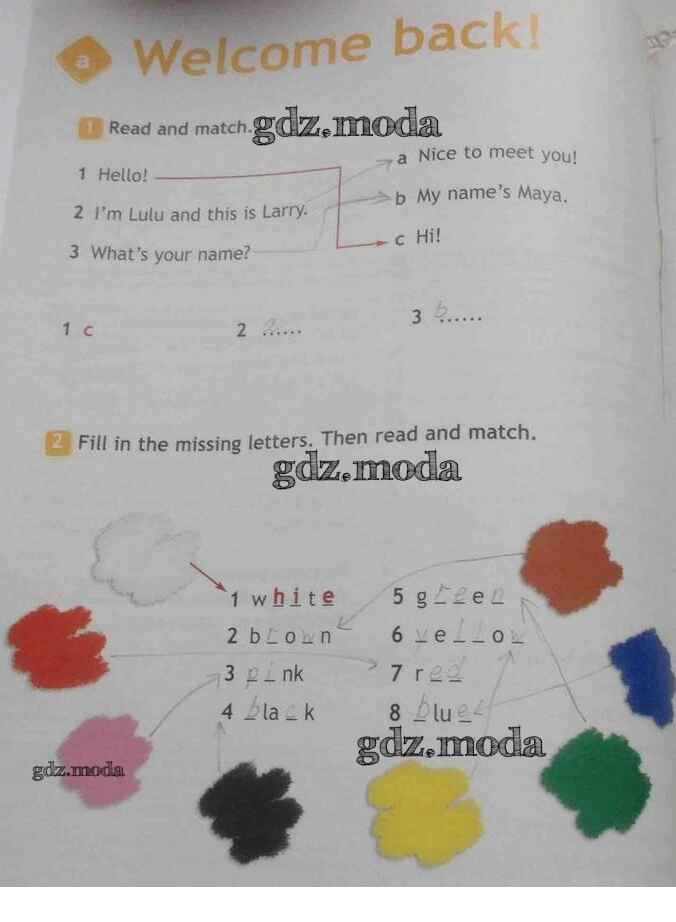 a Welcome back!
1 Read and match. gdz.moda
1 Hello!
2 I'm Lulu and this is Larry.
3 What's your name?
a Nice to meet you!
b My name's Maya.
c Hi!
1 c 2 a...... 3 b......
2 Fill in the missing letters. Then read and match.
gdz.moda
1 white
2 brown
3 pink
4 black
5 green
6 yellow
7 red
8 blue
gdz.moda
gdz.moda